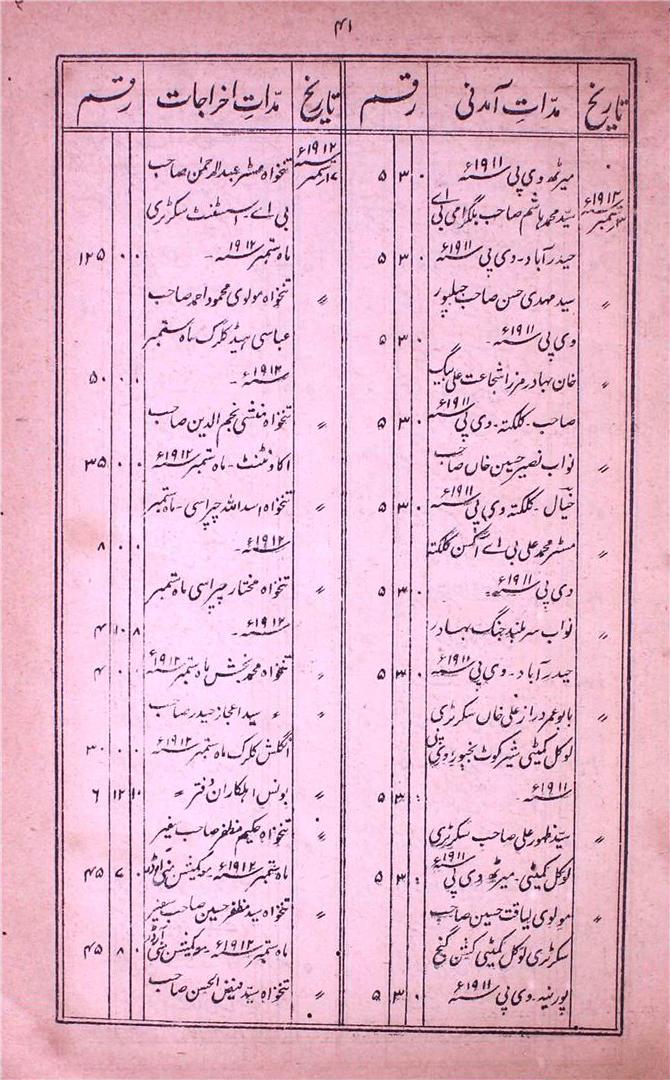 ۴۱
تاریخ مدّاتِ آمدنی رقم تاریخ مدّاتِ اخراجات رقم
میرٹھ وی پی سنہ ۱۹۱۱ء ۵ ۳ ۰
۳ ستمبر سنہ ۱۹۱۲ء سید محمد ہاشم صاحب بلگرامی بی اے
حیدرآباد۔ وی پی سنہ ۱۹۱۱ء ۵ ۳ ۰
〃 سید مہدی حسن صاحب جبلپور
وی پی سنہ ۱۹۱۱ء۔ ۵ ۳ ۰
〃 خان بہادر مرزا شجاعت علی بیگ
صاحب۔ کلکتہ۔ وی پی سنہ ۱۹۱۱ء ۵ ۳ ۰
〃 نواب نصیر حسین خاں صاحب
خیال۔ کلکتہ وی پی سنہ ۱۹۱۱ء ۵ ۳ ۰
〃 مسٹر محمد علی بی اے آکسن کلکتہ
وی پی سنہ ۱۹۱۱ء۔ ۵ ۳ ۰
〃 نواب سربلند جنگ بہادر
حیدرآباد۔ وی پی سنہ ۱۹۱۱ء ۵ ۳ ۰
〃 بابو عمر دراز علی خاں سکرٹری
لوکل کمیٹی شیرکوٹ بجنور وی پی
سنہ ۱۹۱۱ء۔ ۵ ۳ ۰
〃 سید ظہور علی صاحب سکرٹری
لوکل کمیٹی۔ میرٹھ وی پی سنہ ۱۹۱۱ء ۵ ۳ ۰
〃 مولوی لیاقت حسین صاحب
سکرٹری لوکل کمیٹی کشن گنج
پورنیہ۔ وی پی سنہ ۱۹۱۱ء ۵ ۳ ۰
ستمبر سنہ ۱۹۱۲ء تنخواہ مسٹر عبدالرحمٰن صاحب
بی اے۔ اسسٹنٹ سکرٹری
ماہ ستمبر سنہ ۱۹۱۲۔ ۱۲۵ ۰ ۰
〃 تنخواہ مولوی محمود احمد صاحب
عباسی ہیڈ کلرک ماہ ستمبر
سنہ ۱۹۱۲ء۔ ۵۰ ۰ ۰
〃 تنخواہ منشی نجم الدین صاحب
اکاونٹنٹ۔ ماہ ستمبر سنہ ۱۹۱۲ء ۳۵ ۰ ۰
〃 تنخواہ اسد اللہ چپراسی۔ ماہ ستمبر
سنہ ۱۹۱۲ء۔ ۸ ۰ ۰
〃 تنخواہ مختار چپراسی ماہ ستمبر
سنہ ۱۹۱۲ء۔ ۴ ۱۰ ۸
〃 تنخواہ محمد بخش ماہ ستمبر سنہ ۱۹۱۲ء ۴ ۰ ۰
〃 〃 سید اعجاز حیدر صاحب
انگلش کلرک ماہ ستمبر سنہ ۱۹۱۲ء ۳۰ ۰ ۰
〃 بونس اہلکاران دفتر 〃 ۶ ۱۲ ۱۰
〃 تنخواہ حکیم مظفر صاحب سفیر
ماہ ستمبر سنہ ۱۹۱۲ء۔ مع کمیشن منی آرڈر ۴۵ ۷ ۰
〃 تنخواہ سید مظفر حسین صاحب سفیر
ماہ ستمبر سنہ ۱۹۱۲ء۔ مع کمیشن منی آرڈر ۴۵ ۸ ۰
〃 تنخواہ سید فیض الحسن صاحب